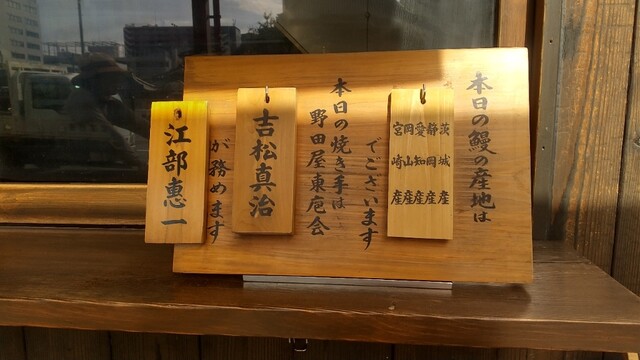 本日の鰻の産地は
茨城産
静岡産
愛知産
岡山産
宮崎産
でございます
本日の焼き手は
野田屋東庖会
吉松真治
が務めます
江部恵一